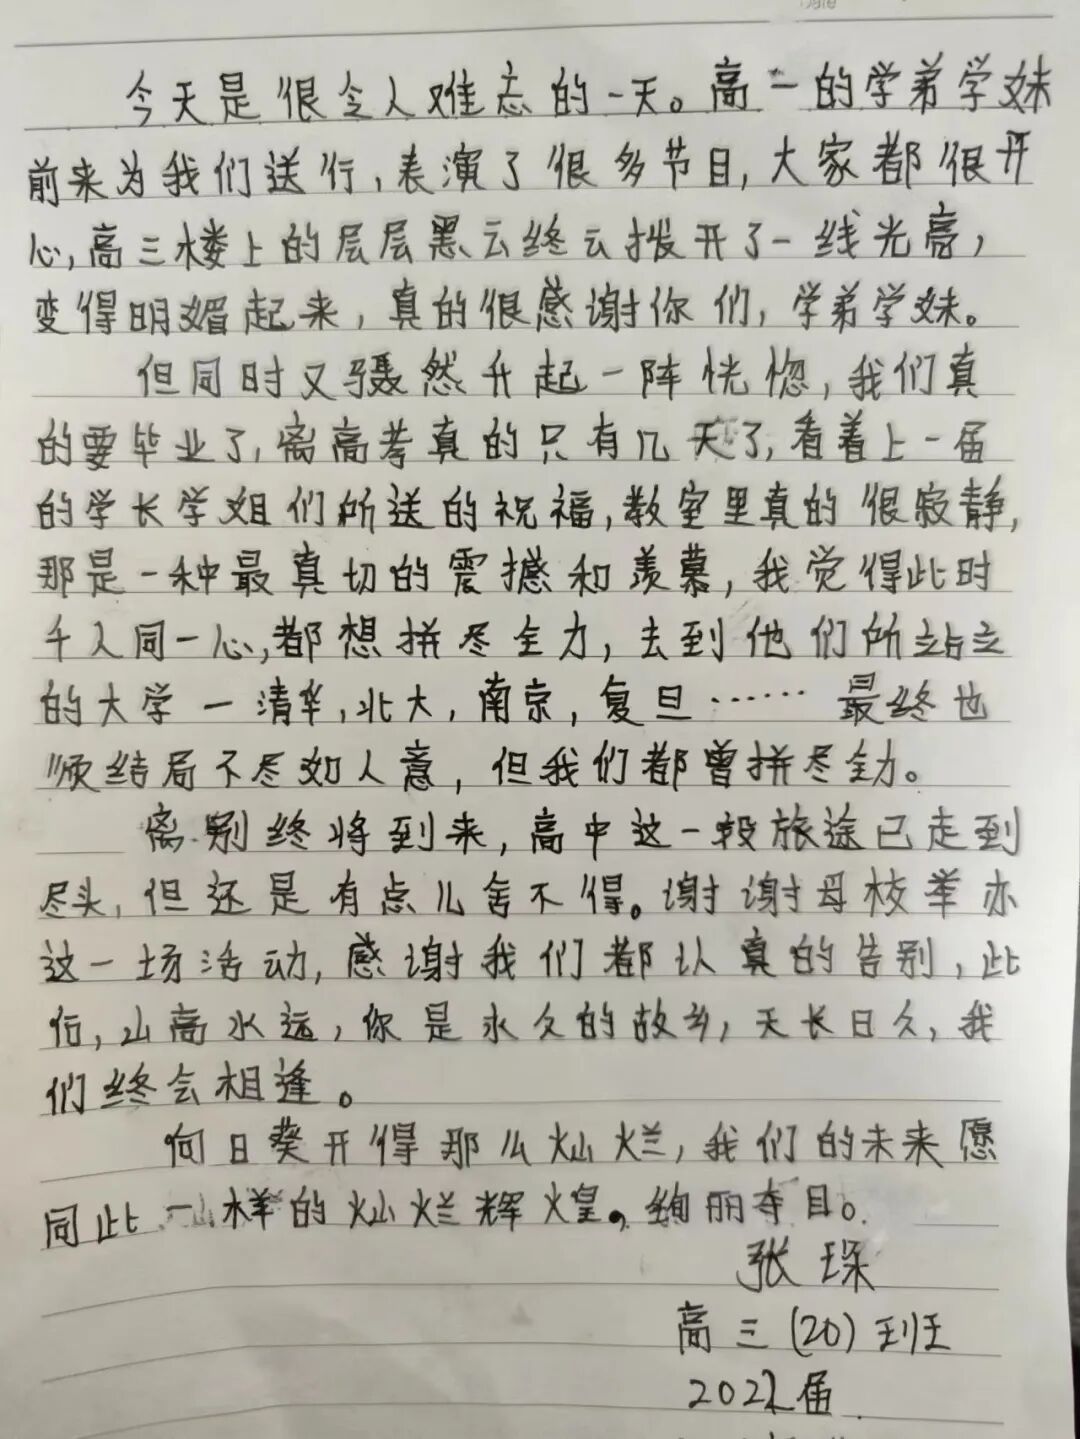 今天是很令人难忘的一天。高一的学弟学妹
前来为我们送行,表演了很多节目,大家都很开
心,高三楼上的层层黑云终云拨开了一线光亮,
变得明媚起来,真的很感谢你们,学弟学妹。
但同时又骤然升起一阵恍惚,我们真
的要毕业了,离高考真的只有几天了,看着上一届
的学长学姐们所送的祝福,教室里真的很寂静,
那是一种最真切的震撼和羡慕,我觉得此时
千人同一心,都想拼尽全力,去到他们所站立
的大学一清华,北大,南京,复旦…… 最终也
须结局不尽如人意,但我们都曾拼尽全力。
离别终将到来,高中这一段旅途已走到
尽头,但还是有点儿舍不得。谢谢母校举办
这一场活动,感谢我们都认真的告别,此
后,山高水远,你是永久的故乡,天长日久,我
们终会相逢。
向日葵开得那么灿烂,我们的未来愿
同此一样的灿烂辉煌。绚丽夺目。
张琛
高三(20)班
2022届